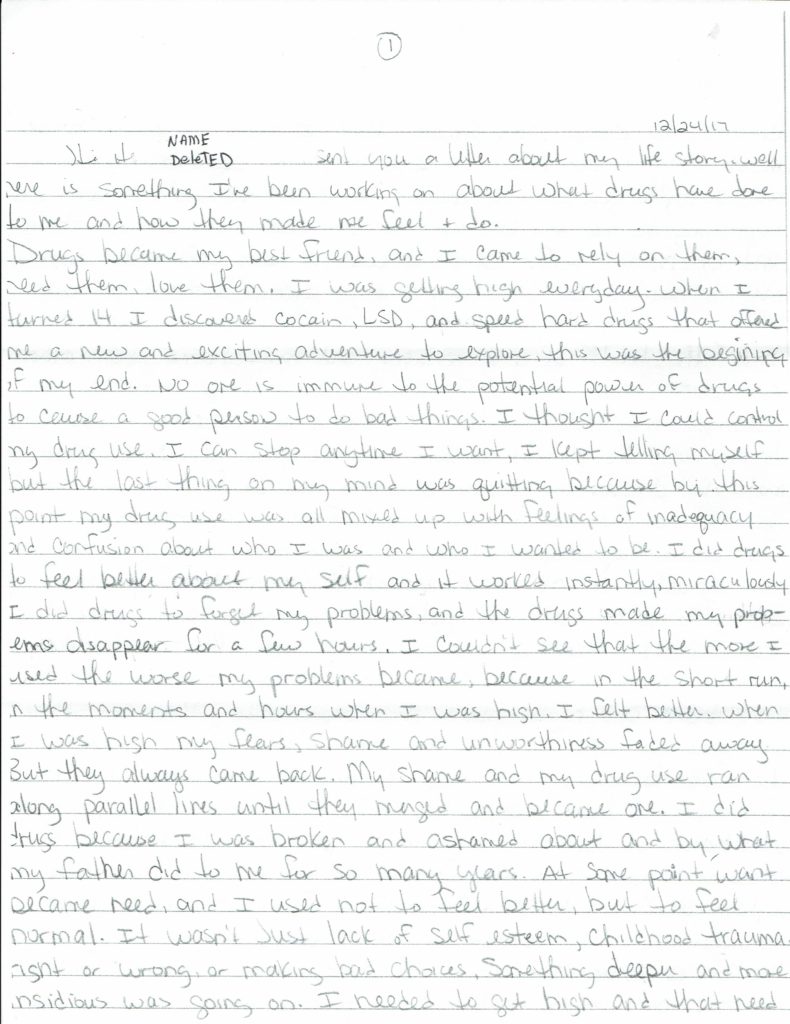 1
12/24/17
NAME
Hi it DeleTED sent you a letter about my life story. well
here is something I've been working on about what drugs have done
to me and how they made me feel + do.
Drugs became my best friend, and I came to rely on them,
need them, love them. I was getting high everyday. When I
turned 14 I discovered cocain, LSD, and speed hard drugs that offered
me a new and exciting adventure to explore, this was the begining
of my end. No one is immune to the potential power of drugs
to ceuse a good person to do bad things. I thought I could control
my drug use. I can stop anytime I want, I kept telling myself
but the last thing on my mind was quitting because by this
point my drug use was all mixed up with feelings of inadequacy
and confusion about who I was and who I wanted to be. I did drugs
to feel better about my self and it worked instantly, miraculously
I did drugs to forget my problems, and the drugs made my prob-
ems disappear for a few hours. I couldn't see that the more I
used the worse my problems became, because in the short run,
in the moments and hours when I was high, I felt better. When
I was high my fears, shame and unworthiness faded away
But they always came back. My shame and my drug use ran
along parallel lines until they merged and became one. I did
drugs because I was broken and ashamed about and by what
my father did to me for so many years. At some point want
became need, and I used not to feel better, but to feel
normal. It wasn't Just lack of self esteem, childhood trauma,
right or wrong, or making bad choices. Something deeper and more
insidious was going on. I needed to get high and that need